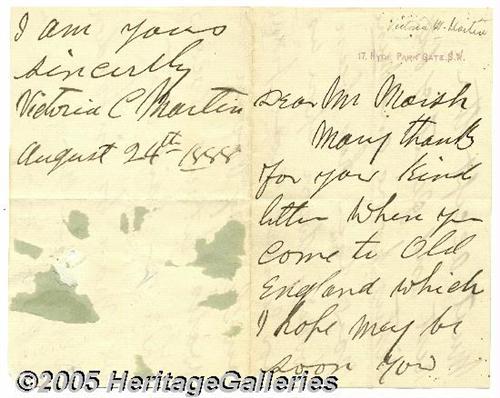 Victoria W. Martin
17, HYDE PARK GATE. S.W.
Dear Mr Marsh
Many thanks
for your kind
letter When you
come to Old
England which
I hope may be
soon You
I am yours
sincerly
Victoria C Martin
August 24th 1888
©2005 HeritageGalleries